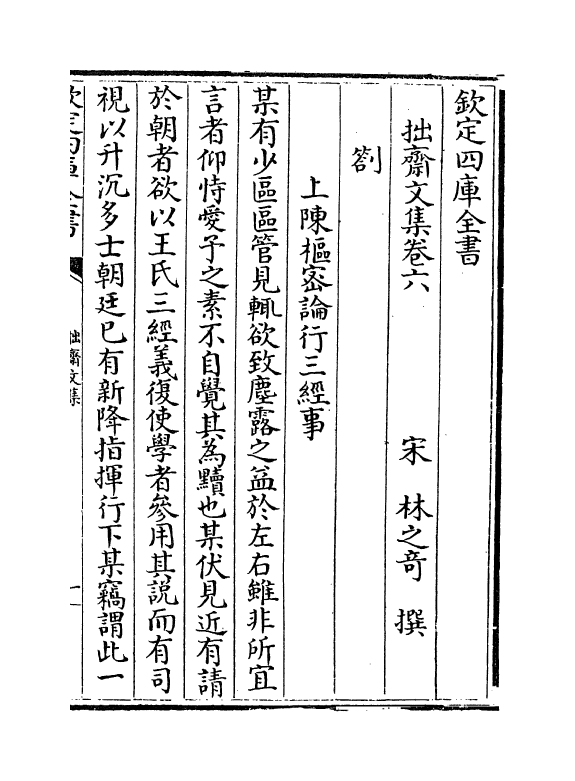 欽定四庫全書
拙齋文集卷六　宋　林之奇　撰
劄
上陳樞密論行三經事
某有少區區管見輒欲致塵露之益於左右雖非所宜
言者仰恃愛予之素不自覺其為黷也某伏見近有請
於朝者欲以王氏三經義復使學者參用其說而有司
視以升沉多士朝廷已有新降指揮行下某竊謂此一
欽定四庫全書
拙齋文集
一